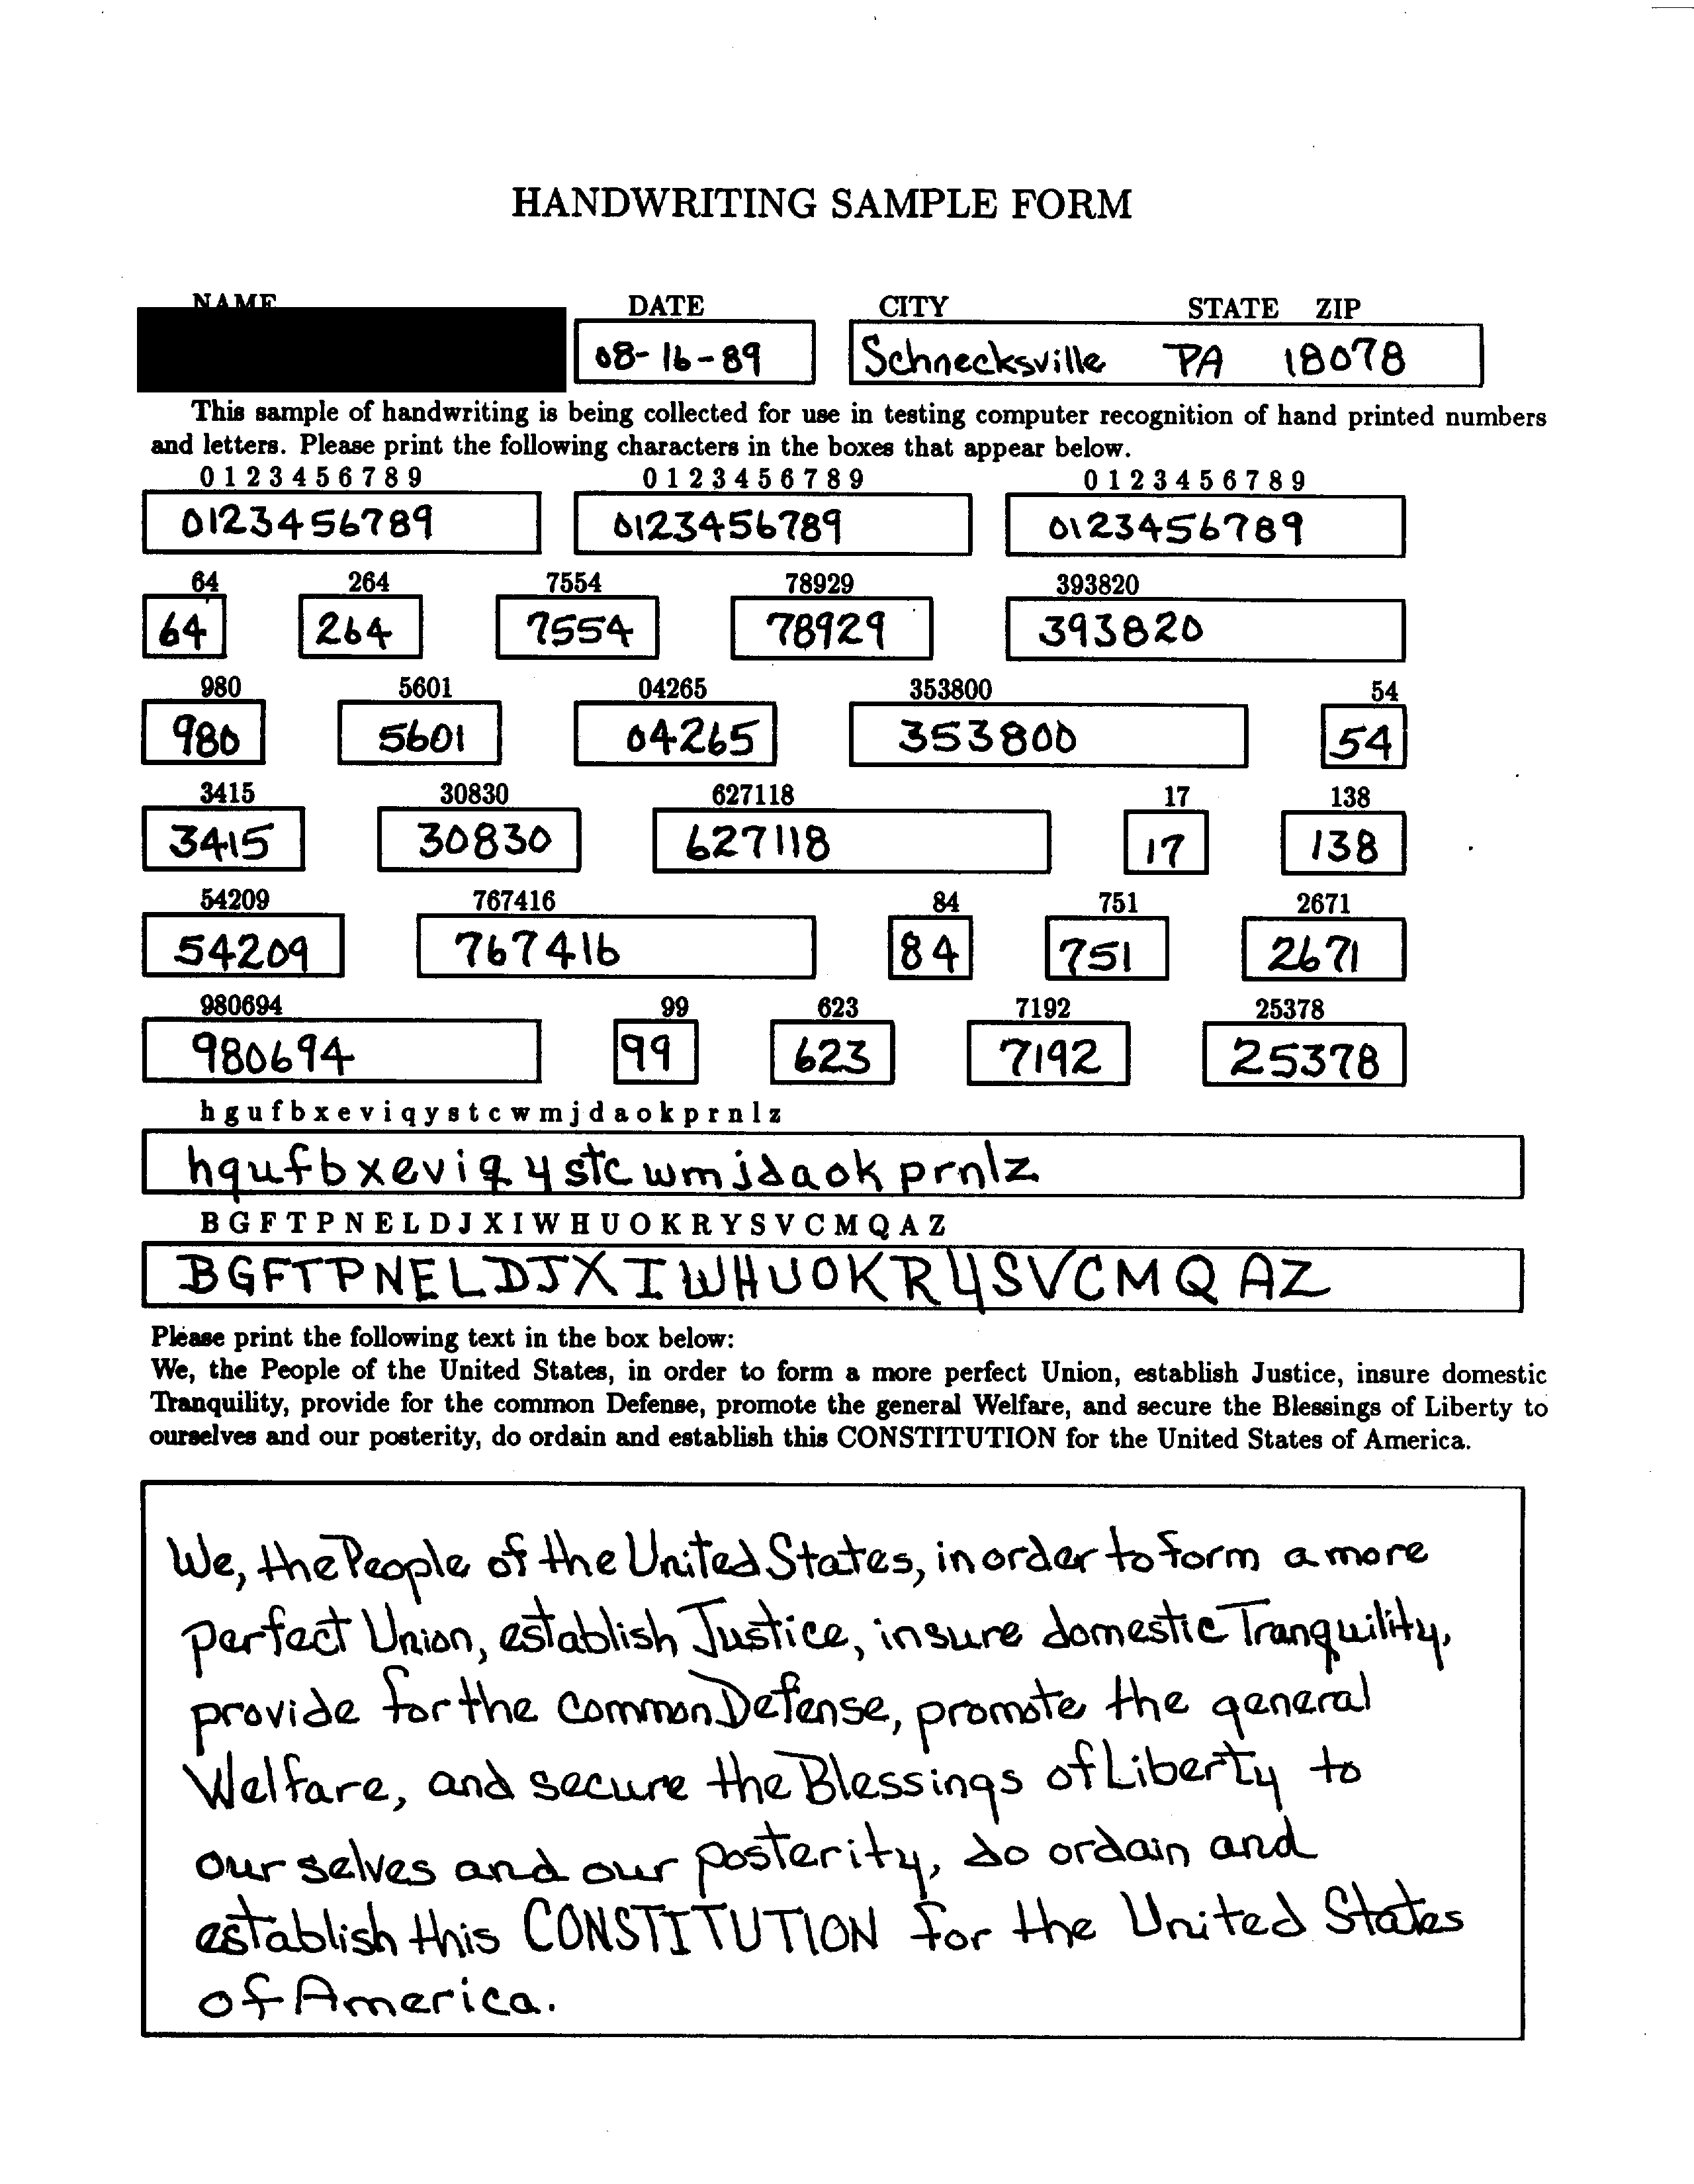 HANDWRITING SAMPLE FORM
NAME DATE CITY STATE ZIP
08-16-89 Schnecksville PA 18078
This sample of handwriting is being collected for use in testing computer recognition of hand printed numbers
and letters. Please print the following characters in the boxes that appear below.
0 1 2 3 4 5 6 7 8 9 0 1 2 3 4 5 6 7 8 9 0 1 2 3 4 5 6 7 8 9
0123456789 0123456789 0123456789
64 264 7554 78929 393820
64 264 7554 78929 393820
980 5601 04265 353800 54
980 5601 04265 353800 54
3415 30830 627118 17 138
3415 30830 627118 17 138
54209 767416 84 751 2671
54209 767416 84 751 2671
980694 99 623 7192 25378
980694 99 623 7192 25378
h g u f b x e v i q y s t c w m j d a o k p r n l z
hgufbxeviqystcwmjdaokprnlz
B G F T P N E L D J X I W H U O K R Y S V C M Q A Z
BGFTPNELDJXIWHUOKRYSVCMQAZ
Please print the following text in the box below:
We, the People of the United States, in order to form a more perfect Union, establish Justice, insure domestic
Tranquility, provide for the common Defense, promote the general Welfare, and secure the Blessings of Liberty to
ourselves and our posterity, do ordain and establish this CONSTITUTION for the United States of America.
We, the People of the United States, in order to form a more
perfect Union, establish Justice, insure domestic Tranquility,
provide for the common Defense, promote the general
Welfare, and secure the Blessings of Liberty to
our selves and our posterity, do ordain and
establish this CONSTITUTION for the United States
of America.